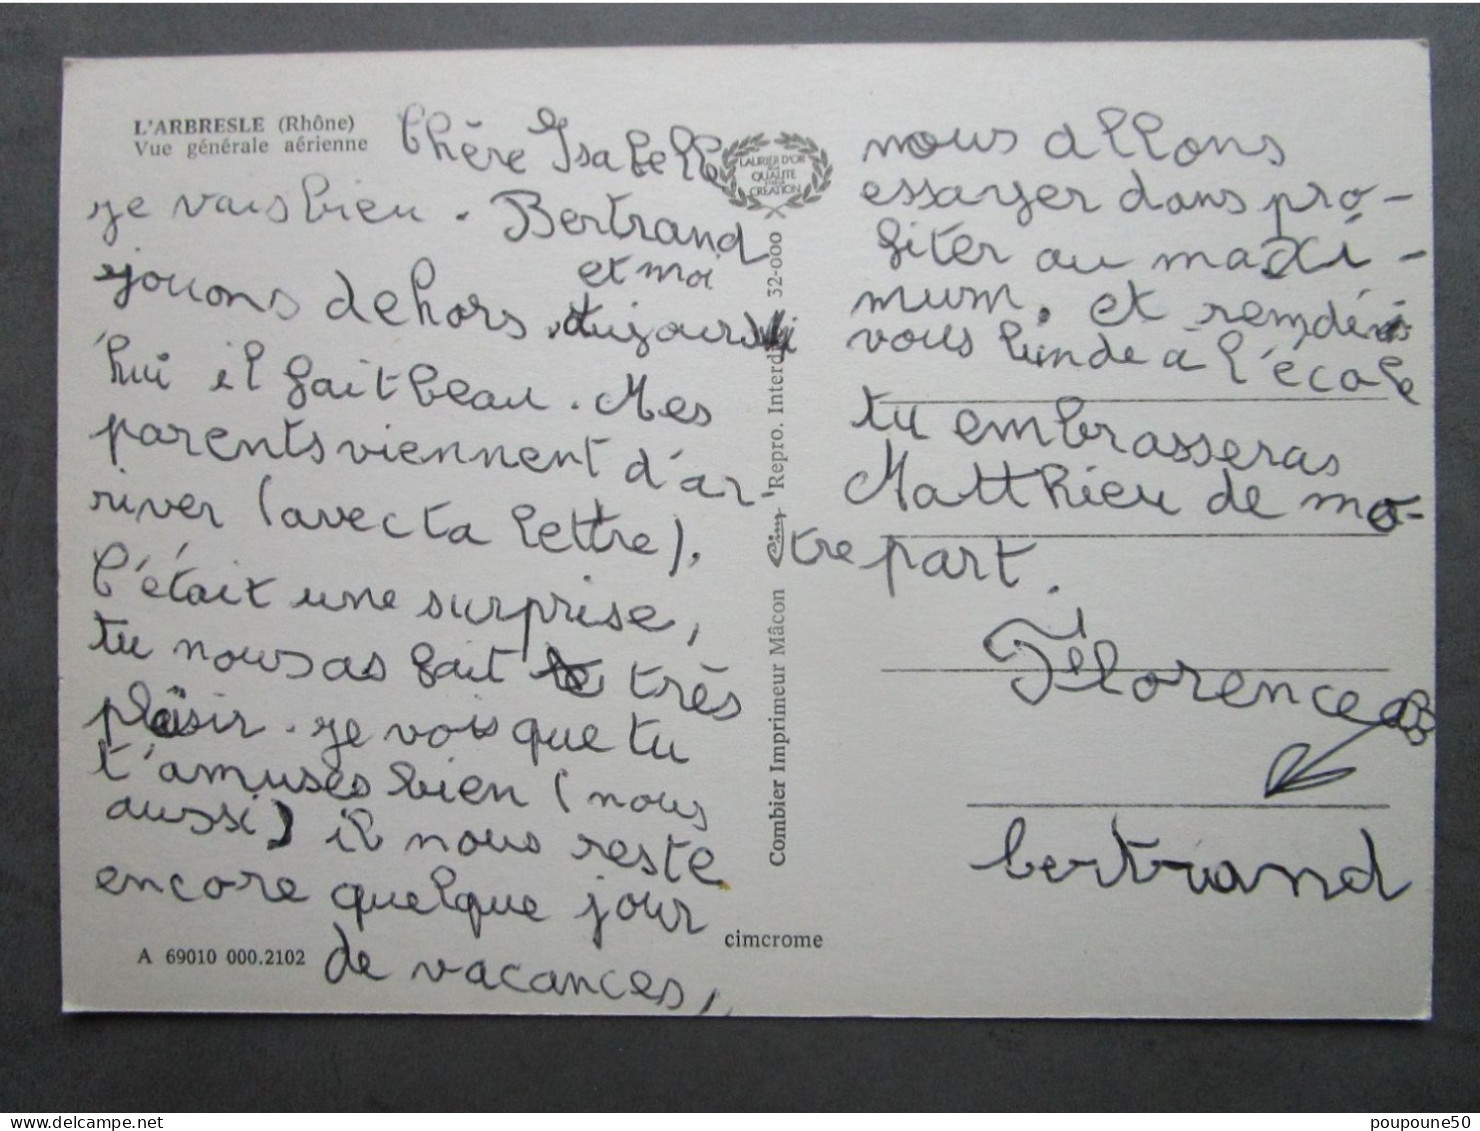 L'ARBRESLE (Rhône)
Vue générale aérienne
Chère Isabelle
je vais bien. Bertrand
et moi
jouons dehors. aujourd
hui il fait beau. Mes
parents viennent d'ar
river (avec ta lettre).
C'était une surprise,
tu nous as fait très
plaisir. je vois que tu
t'amuses bien (nous
aussi) il nous reste
encore quelque jour
de vacances,
A 69010 000.2102
LAURIER D'OR
DE LA
QUALITÉ
CRÉATION
Combier Imprimeur Mâcon Cim Repro. Interdite 32-000
cimcrome
nous allons
essayer dans pro-
fiter au maxi-
mum. et remdés
vous lunde a l'école
tu embrasseras
Matthieu de mo-
tre part.
Florence
bertrand
poupoune50